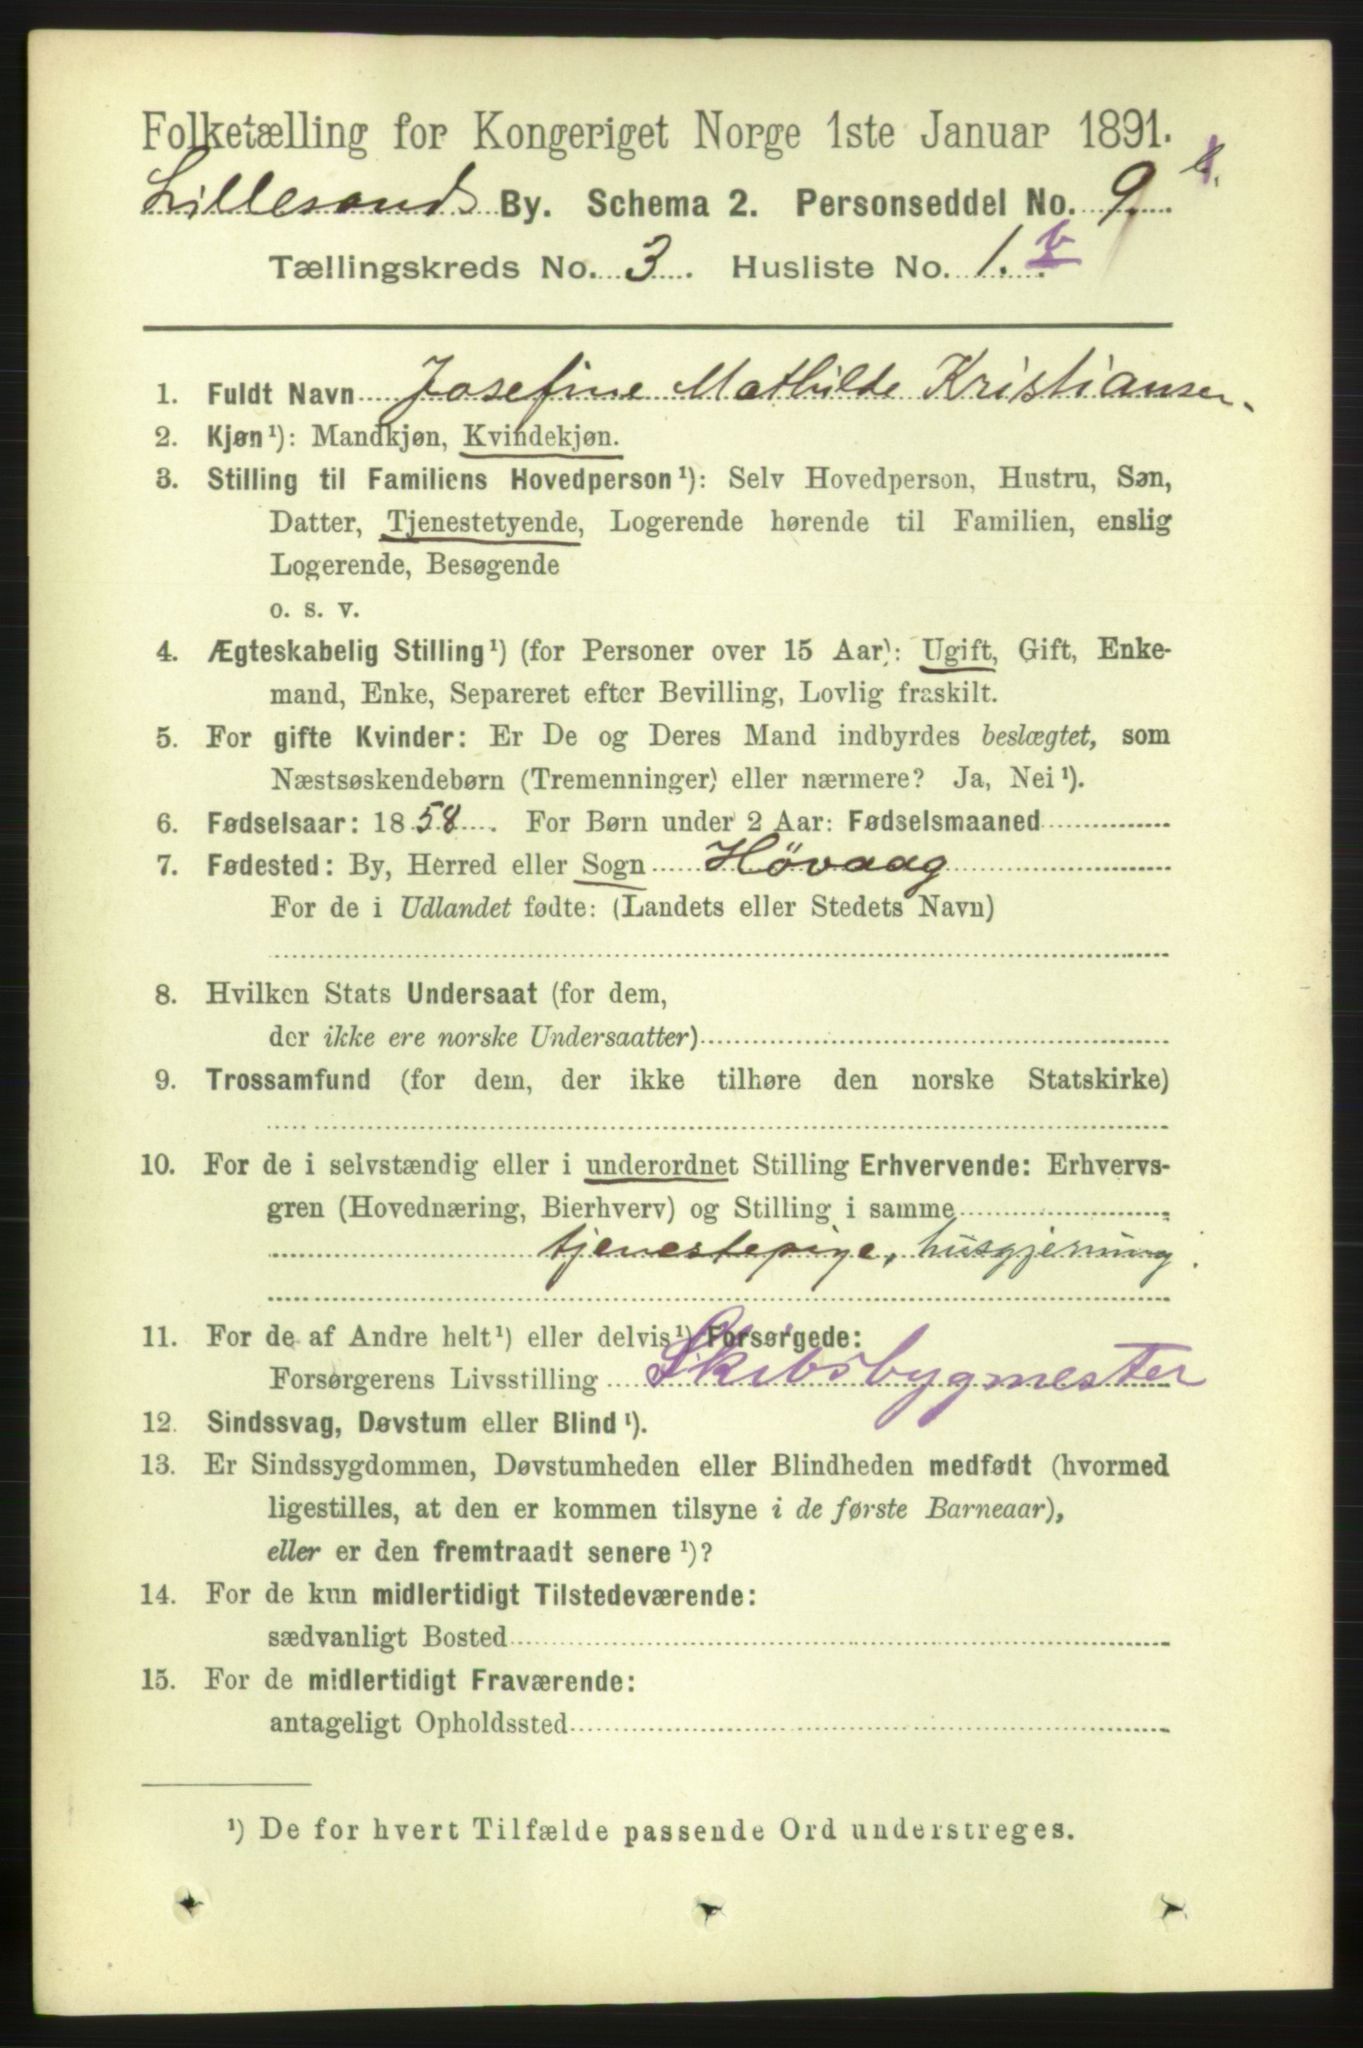 Folketælling for Kongeriget Norge 1ste Januar 1891.
Lillesands By. Schema 2. Personseddel No. 9.
Tællingskreds No. 3. Husliste No. 1.
1. Fuldt Navn Josefine Mathilde Kristiansen.
2. Kjøn ¹): Mandkjøn, Kvindekjøn.
3. Stilling til Familiens Hovedperson ¹): Selv Hovedperson, Hustru, Søn,
Datter, Tjenestetyende, Logerende hørende til Familien, enslig
Logerende, Besøgende
o. s. v.
4. Ægteskabelig Stilling ¹) (for Personer over 15 Aar): Ugift, Gift, Enke-
mand, Enke, Separeret efter Bevilling, Lovlig fraskilt.
5. For gifte Kvinder: Er De og Deres Mand indbyrdes beslægtet, som
Næstsøskendebørn (Tremenninger) eller nærmere? Ja, Nei ¹).
6. Fødselsaar: 1858. For Børn under 2 Aar: Fødselsmaaned
7. Fødested: By, Herred eller Sogn Hövaag
For de i Udlandet fødte: (Landets eller Stedets Navn)
8. Hvilken Stats Undersaat (for dem,
der ikke ere norske Undersaatter)
9. Trossamfund (for dem, der ikke tilhøre den norske Statskirke)
10. For de i selvstændig eller i underordnet Stilling Erhvervende: Erhvervs-
gren (Hovednæring, Bierhverv) og Stilling i samme
tjenestepige, husgjerning.
11. For de af Andre helt ¹) eller delvis ¹) Forsørgede:
Forsørgerens Livsstilling Skibsbygmester
12. Sindssvag, Døvstum eller Blind ¹).
13. Er Sindssygdommen, Døvstumheden eller Blindheden medfødt (hvormed
ligestilles, at den er kommen tilsyne i de første Barneaar),
eller er den fremtraadt senere ¹)?
14. For de kun midlertidigt Tilstedeværende:
sædvanligt Bosted
15. For de midlertidigt Fraværende:
antageligt Opholdssted
¹) De for hvert Tilfælde passende Ord understreges.